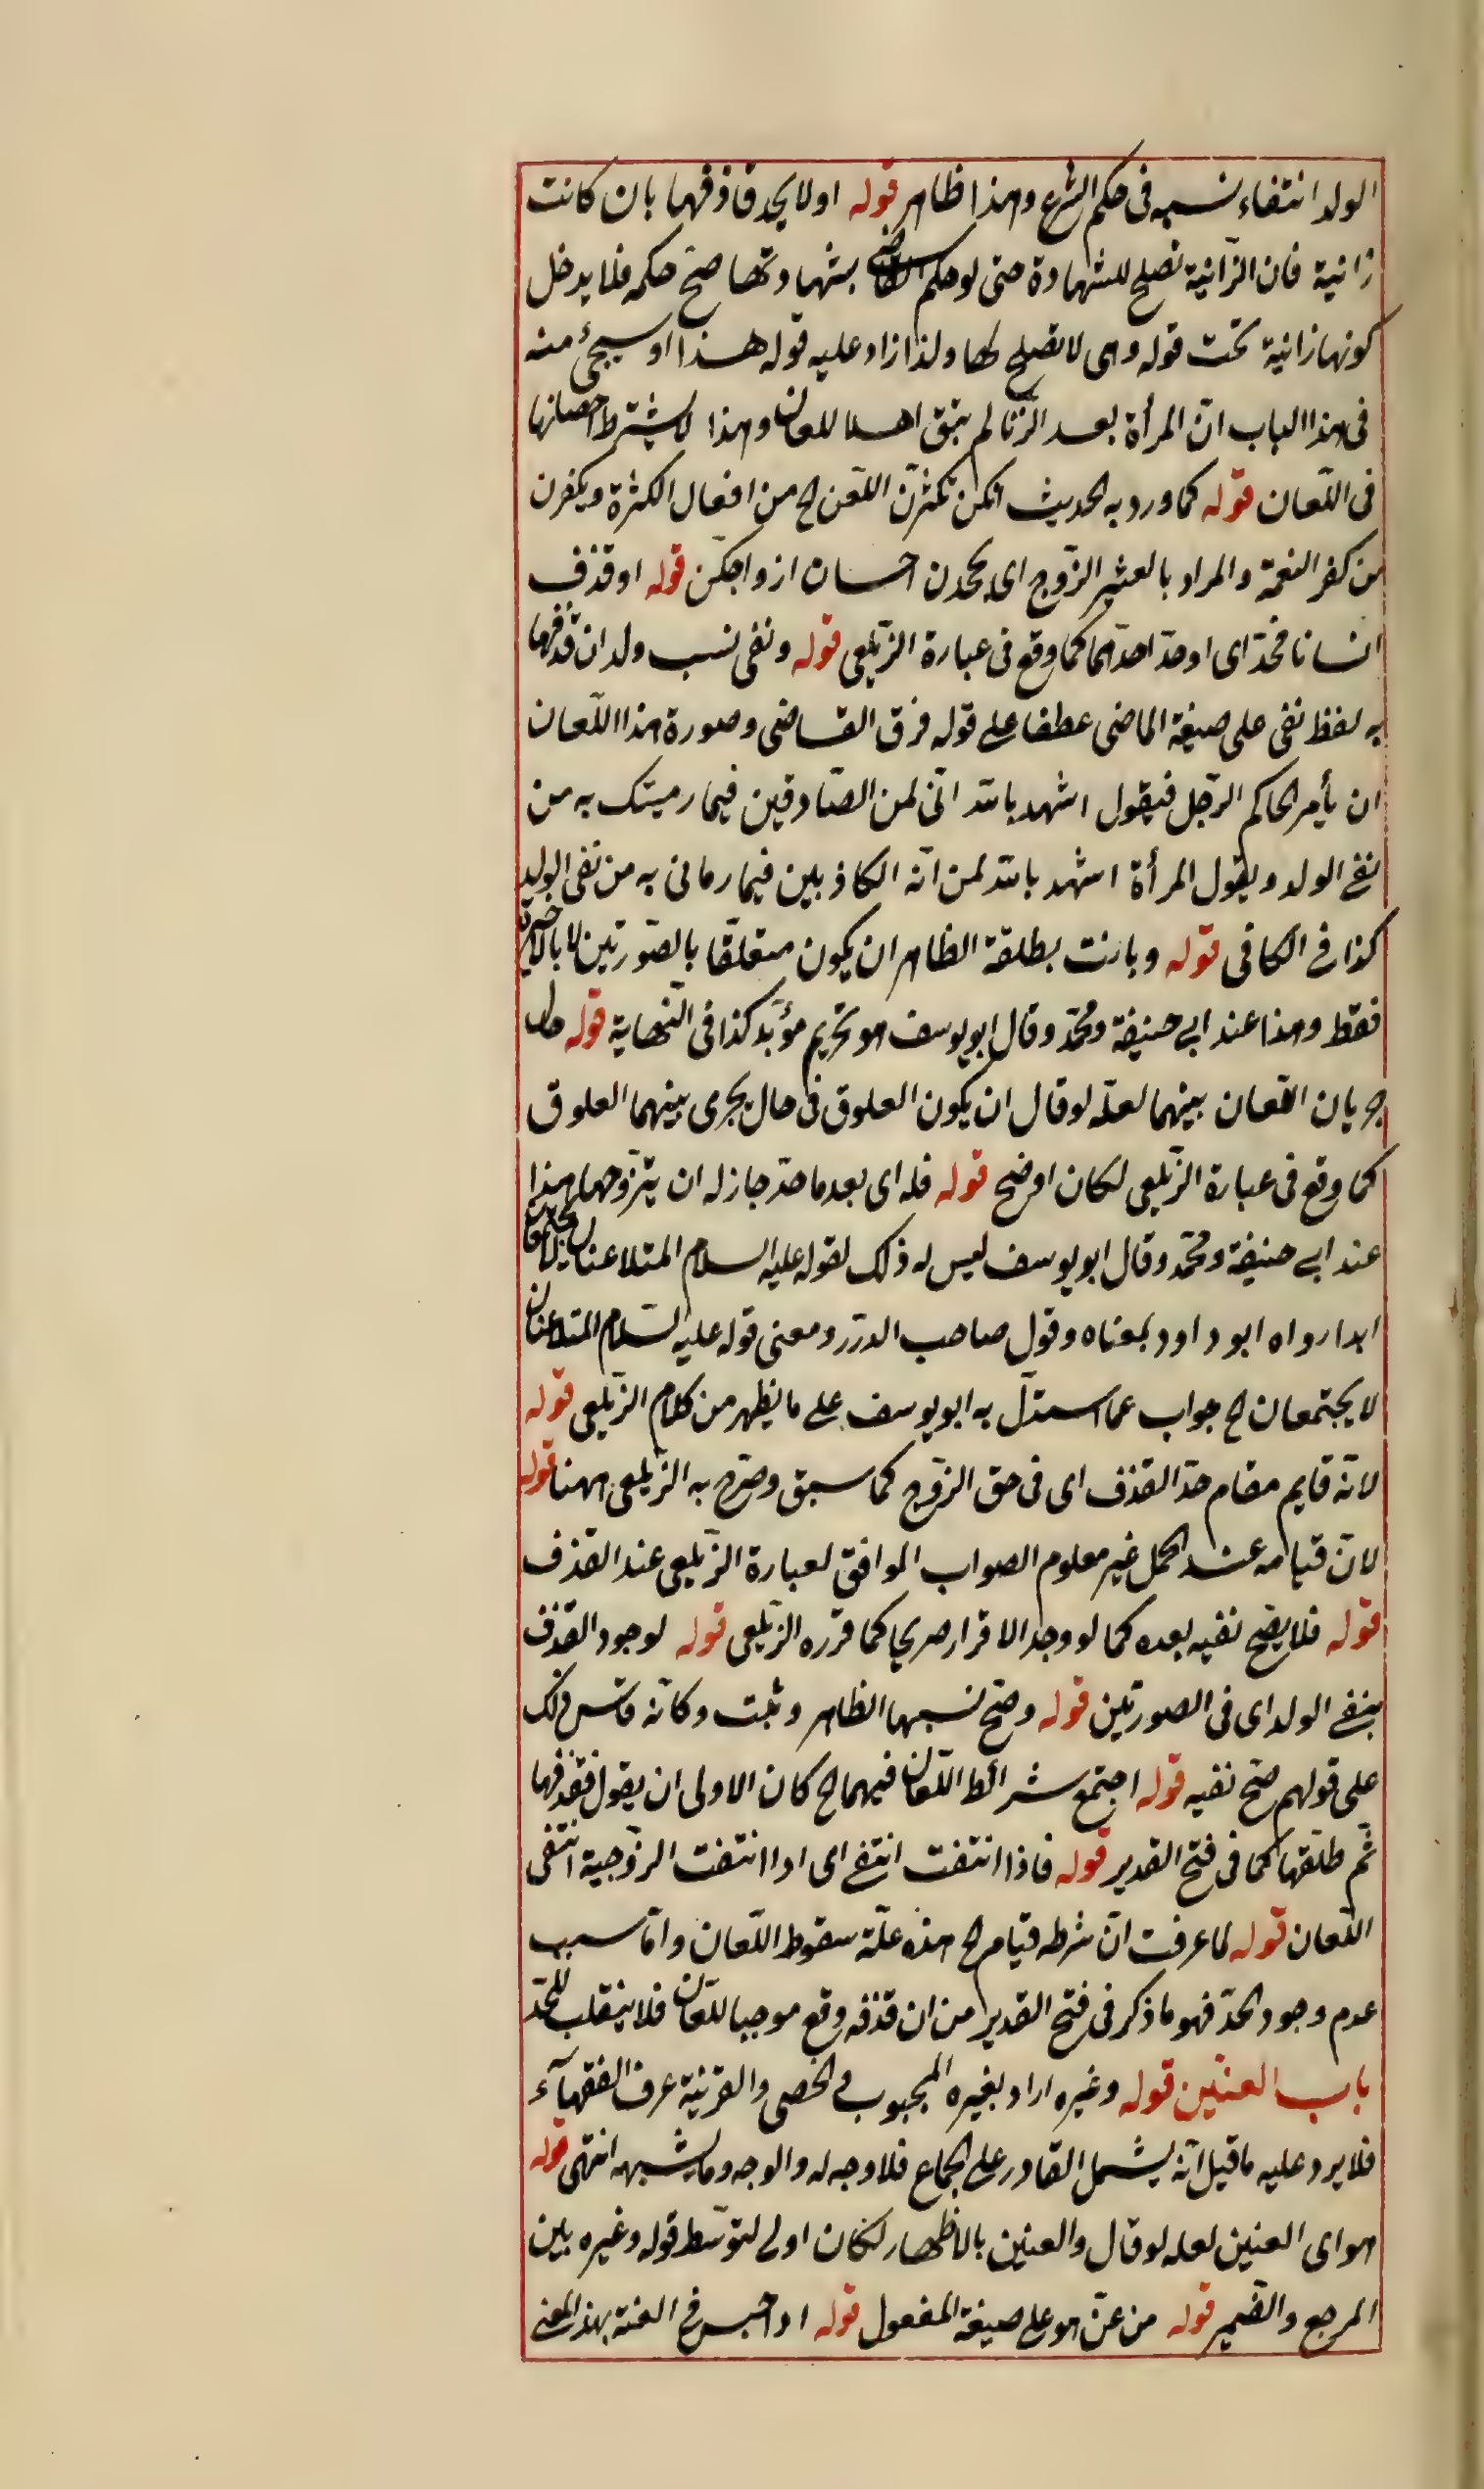 الولد انتفاء نسبه فى حكم الشرع وهذا ظاهر قوله اولا يحد قاذفها بان كانت
زانية فان الزانية تصلح للشهادة حتى لو حكم القاضى بشهادتها صح حكمه فلا يدخل
كونها زانية تحت قوله وهى لا تصلح لها ولذا زاد عليه قوله هذا او سيجئ منه
فى هذا الباب ان المرأة بعد الزنا لم يبق اهلا للعان وهذا لا يشترط احصانها
فى اللعان قوله كما ورد به الحديث انكن تكثرن اللعن الخ من افعال الكثرة ويكفرن
من كفر النعمة والمراد بالعشير الزوج اى يجحدن احسان ازواجكن قوله او قذف
انسانا فحد اى اوحد احدهما كما وقع فى عبارة الزيلعى قوله ونفى نسب ولد ان قذفها
به لفظ نفى على صيغة الماضى عطفا على قوله فرق القاضى وصورة هذا اللعان
ان يأمر الحاكم الرجل فيقول اشهد بالله انى لمن الصادقين فيما رميتك به من
نفى الولد ويقول المرأة اشهد بالله لمن انه الكاذبين فيما رمانى به من نفى الولد
كذا فى الكافى قوله وبانت بطلقة الظاهر ان يكون متعلقا بالصورتين لا بالاخيرة
فقط وهذا عند ابى حنيفة ومحمد وقال ابو يوسف هو تحريم مؤبد كذا فى النهاية قوله حال
جريان اللعان بينهما لعله لو قال ان يكون العلوق فى حال يجرى بينهما العلوق
كما وقع فى عبارة الزيلعى لكان اوضح قوله فله اى بعد ما حد جاز له ان يتزوجها هذا
عند ابى حنيفة ومحمد وقال ابو يوسف ليس له ذلك لقوله عليه السلام المتلاعنان لا يجتمعان
ابدا رواه ابو داود بمعناه وقول صاحب الدرر ومعنى قوله عليه السلام المتلاعنان
لا يجتمعان الخ جواب عما استدل به ابو يوسف على ما يظهر من كلام الزيلعى قوله
لانه قايم مقام حد القذف اى فى حق الزوج كما سبق وصرح به الزيلعى ههنا قوله
لان قيامه عند الحمل غير معلوم الصواب الموافق لعبارة الزيلعى عند القذف
قوله فلا يصح نفيه بعده كما لو وجد الاقرار صريحا كما قرره الزيلعى قوله لوجود القذف
بنفى الولد اى فى الصورتين قوله وصح نسبهما الظاهر وثبت وكأنه قاس ذلك
على قولهم صح نفيه قوله اجتمع شرائط اللعان فيهما الخ كان الاولى ان يقول فقذفها
ثم طلقها كما فى فتح القدير قوله فاذا انتفت انتفى اى اذا انتفت الزوجية انتفى
اللعان قوله لما عرفت ان شرطه قيامه الخ هذه علة سقوط اللعان واما سبب
عدم وجود الحد فهو ما ذكر فى فتح القدير من ان قذفه وقع موجبا للعان فلا ينقلب للحد
باب العنين قوله وغيره اراد بغيره المجبوب والخصى والقرينة عرف الفقهآء
فلا يرد عليه ما قيل انه يشمل القادر على الجماع فلا وجه له والوجه وما يشبهه انتهى قوله
هو اى العنين لعله لو قال والعنين بالاظهار لكان اولى لتوسط قوله وغيره بين
المرجع والضمير قوله من عن هو على صيغة المفعول قوله اذا حبس فى العنة بهذا المعنى